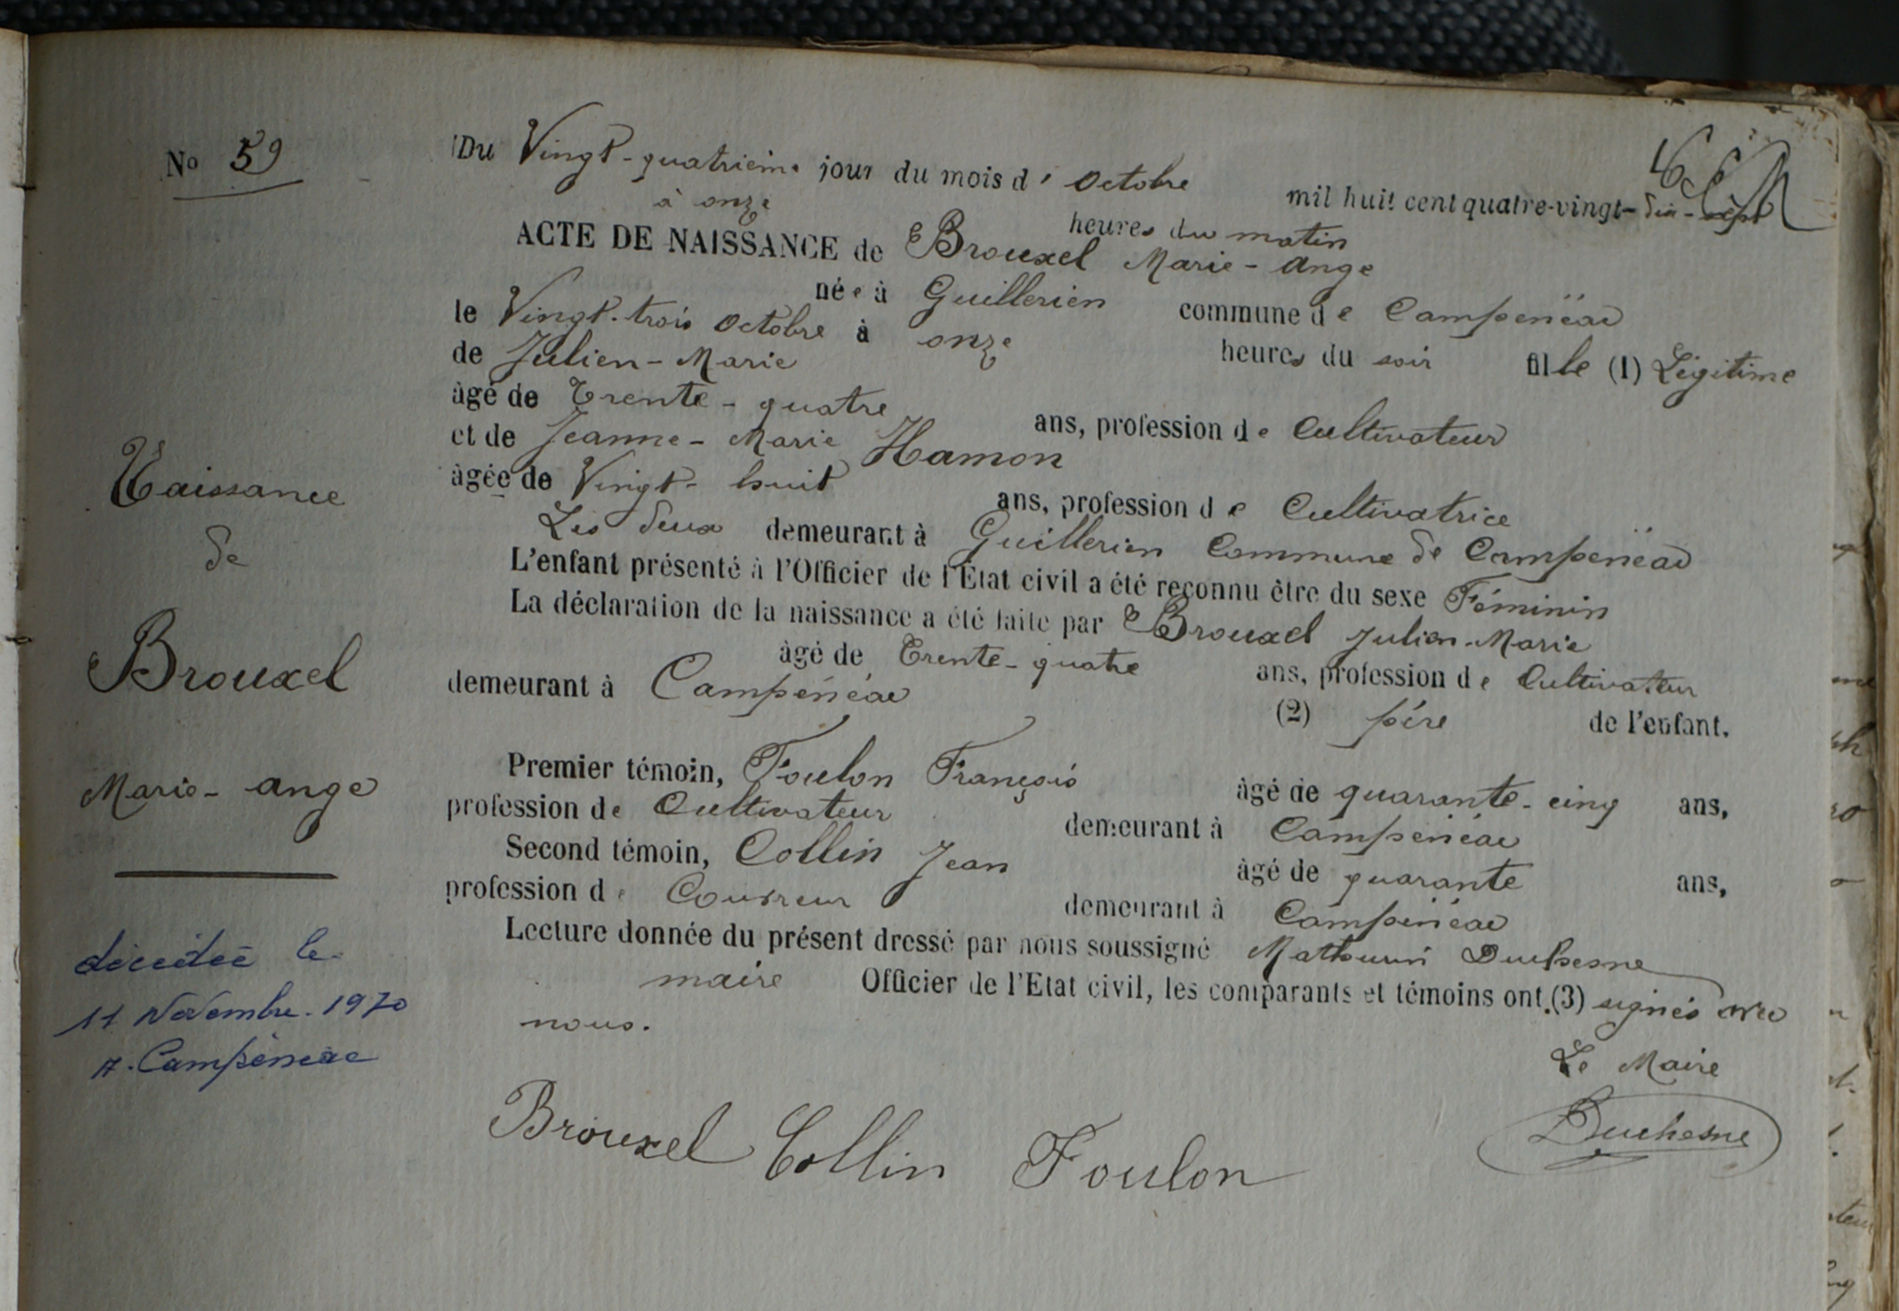 No 59
Du Vingt-quatrième jour du mois d'octobre mil huit cent quatre-vingt-dix-sept
à onze heures du matin
ACTE DE NAISSANCE de Brouxel Marie-Ange
née à Guillerien commune de Campénéac
le Vingt-trois Octobre à onze heures du soir fille (1) Légitime
de Julien-Marie
âgé de Trente-quatre ans, profession de Cultivateur
et de Jeanne-Marie Hamon
âgée de Vingt-huit ans, profession de Cultivatrice
Les deux demeurant à Guillerien Commune de Campénéac
L'enfant présenté à l'Officier de l'Etat civil a été reconnu être du sexe Féminin
La déclaration de la naissance a été faite par Brouxel Julien-Marie
âgé de Trente-quatre ans, profession de Cultivateur
demeurant à Campénéac (2) père de l'enfant.
Premier témoin, Foulon François âgé de quarante-cinq ans,
profession de Cultivateur demeurant à Campénéac
Second témoin, Collin Jean âgé de quarante ans,
profession de Couvreur demeurant à Campénéac
Lecture donnée du présent dressé par nous soussigné Mathurin Duchesne
maire Officier de l'Etat civil, les comparants et témoins ont (3) signés avec
nous.
Le Maire
Duchesne
Brouxel Collin Foulon
Naissance
de
Brouxel
Marie-Ange
décédée le
11 Novembre 1970
A. Campénéac